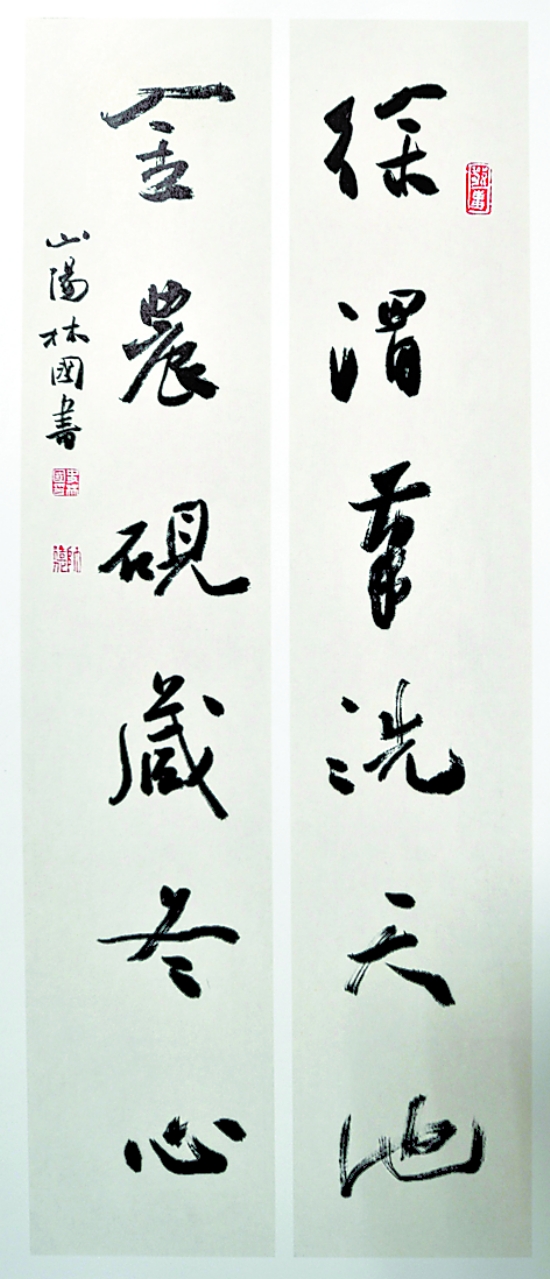 徐渭筆洗天池
金農硯藏冬心
山陽林國書